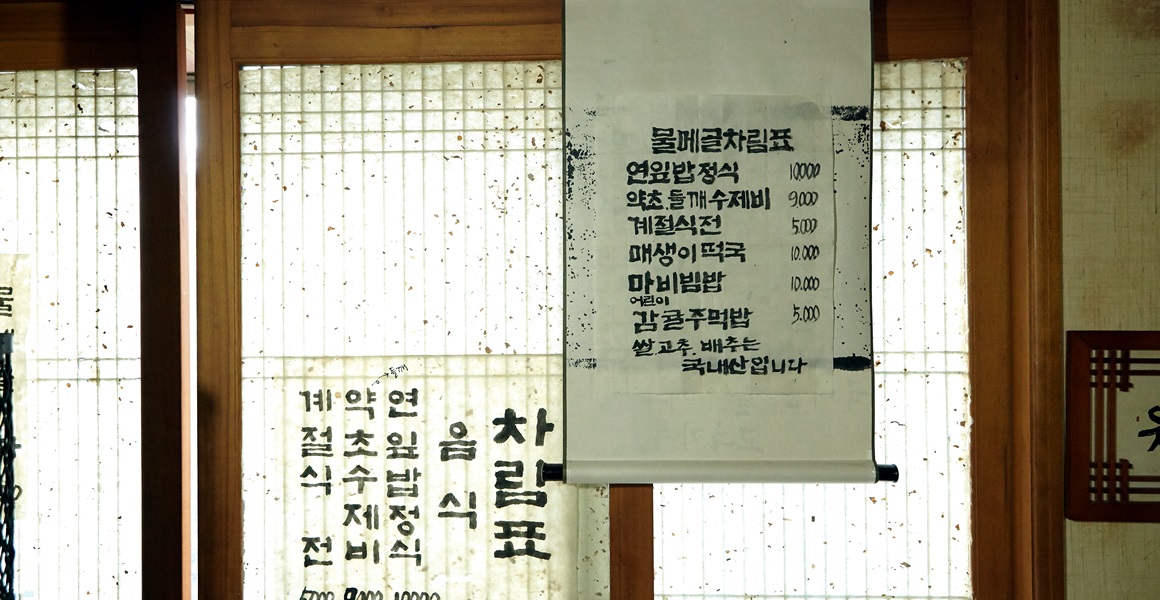 물메골차림표
연잎밥정식 10,000
약초.들깨수제비 9,000
계절식전 5,000
매생이떡국 10,000
마비빔밥 10,000
어린이
감귤주먹밥 5,000
쌀.고추.배추는
국내산입니다
차림표
음식
연잎밥정식 10000
약초수제비 9000
들깨
계절식전 5000
물